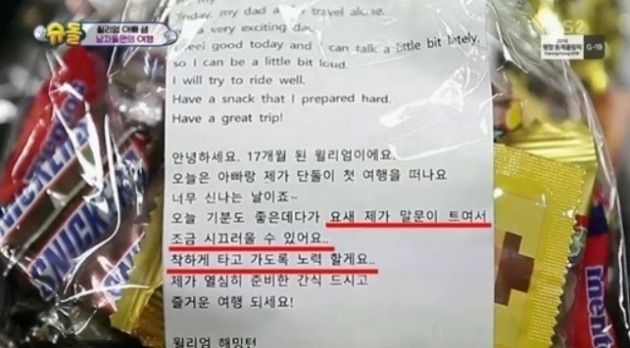 슈돌
윌리엄 아빠 샘
남자들만의 여행
KBS2
2018
평창 동계올림픽
PyeongChang 2018
G-19
my dad travel alone.
a very exciting day.
feel good today and I can talk a little bit lately,
so I can be a little bit loud.
I will try to ride well.
Have a snack that I prepared hard.
Have a great trip!
안녕하세요. 17개월 된 윌리엄이에요.
오늘은 아빠랑 제가 단둘이 첫 여행을 떠나요
너무 신나는 날이죠~
오늘 기분도 좋은데다가 요새 제가 말문이 트여서
조금 시끄러울 수 있어요..
착하게 타고 가도록 노력 할게요..
제가 열심히 준비한 간식 드시고
즐거운 여행 되세요!
윌리엄 해밍턴
SNICKERS
SNICKERS